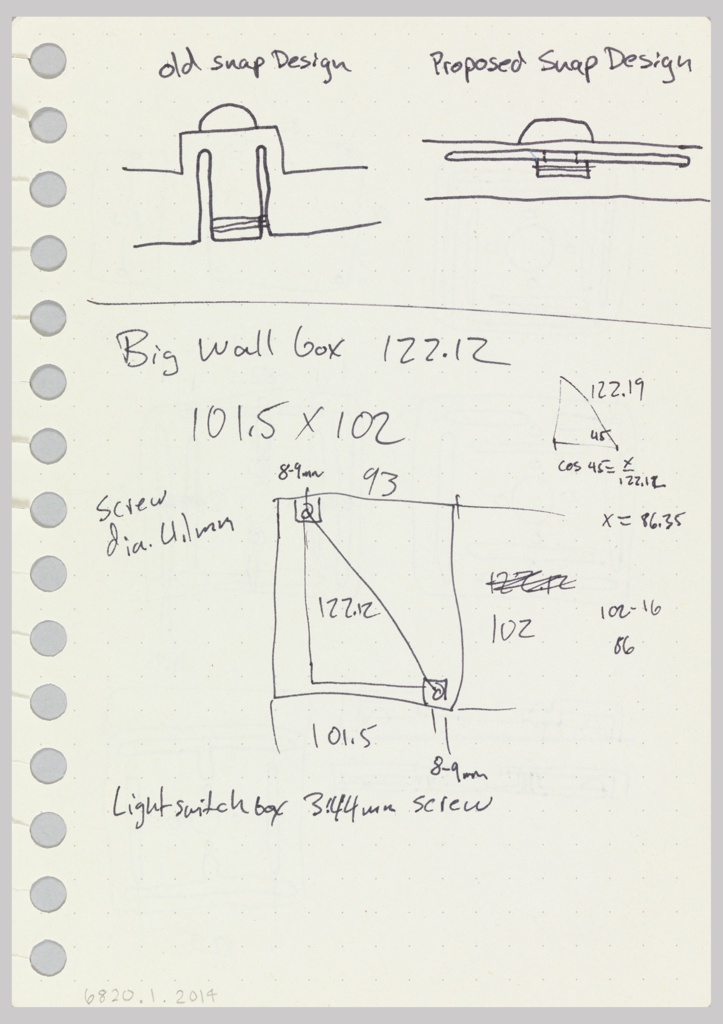 old snap Design
Proposed Snap Design
Big wall box 122.12
101.5 X 102
122.19
45
cos 45 = x/122.12
x = 86.35
8-9mm
93
screw
dia. 4.1mm
122.12
102
102-16
86
101.5
8-9mm
Lightswitch box 3.44mm screw
6820.1.2014